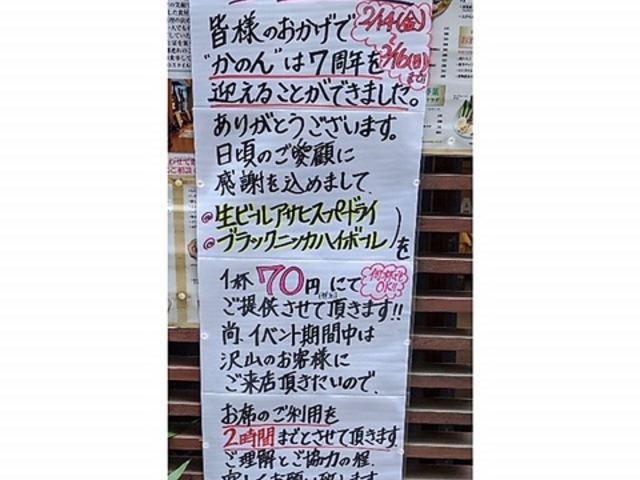 皆様のおかげで
2/14(金)
〜
2/16(日)
まで!!
"かのん"は7周年を
迎えることができました。
ありがとうございます。
日頃のご愛顧に
感謝を込めまして、
◎生ビールアサヒスーパードライ
◎ブラックニッカハイボール
を
1杯70円にて
何杯でも
OK!!
ご提供させて頂きます!!
尚、イベント期間中は
沢山のお客様に
ご来店頂きたいので、
お席のご利用を
2時間までとさせて頂きます。
ご理解とご協力の程、
宜しくお願い致します